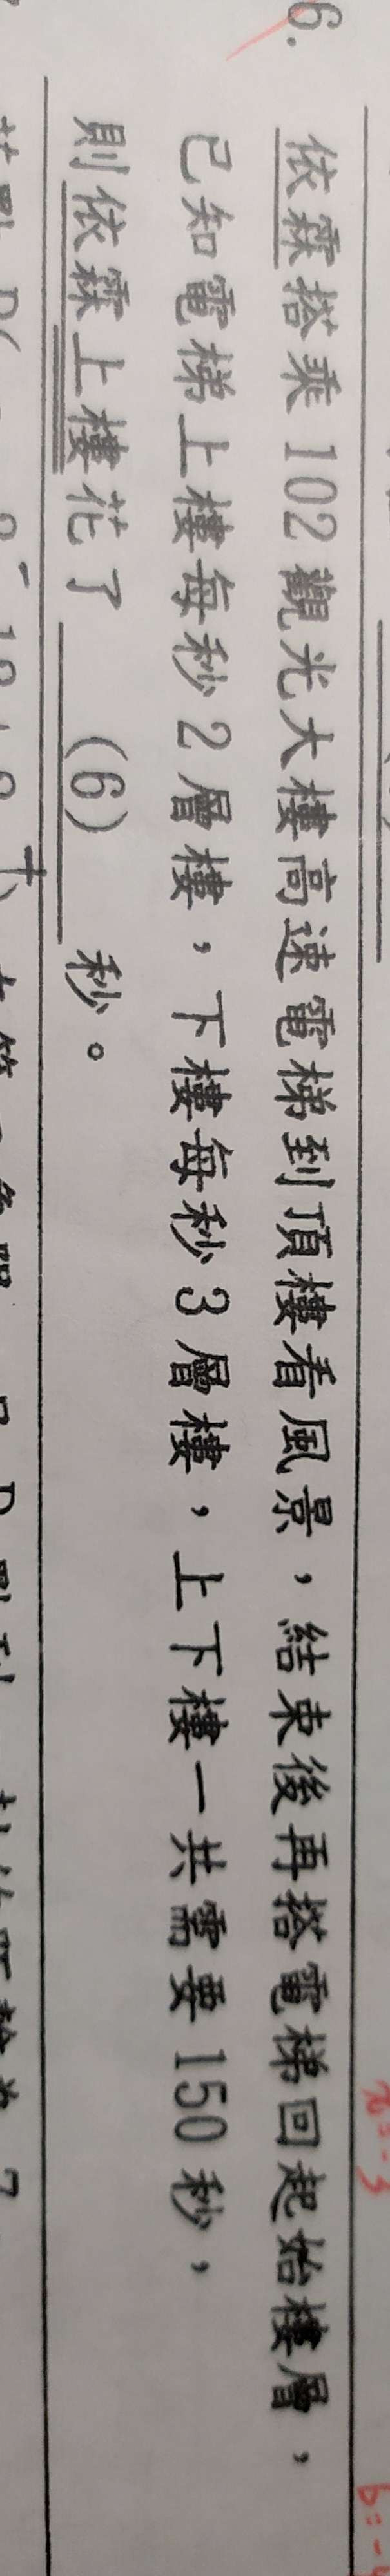 6.
依霖搭乘 102 觀光大樓高速電梯到頂樓看風景，結束後再搭電梯回起始樓層，
已知電梯上樓每秒 2 層樓，下樓每秒 3 層樓，上下樓一共需要 150 秒，
則依霖上樓花了 (6) 秒。